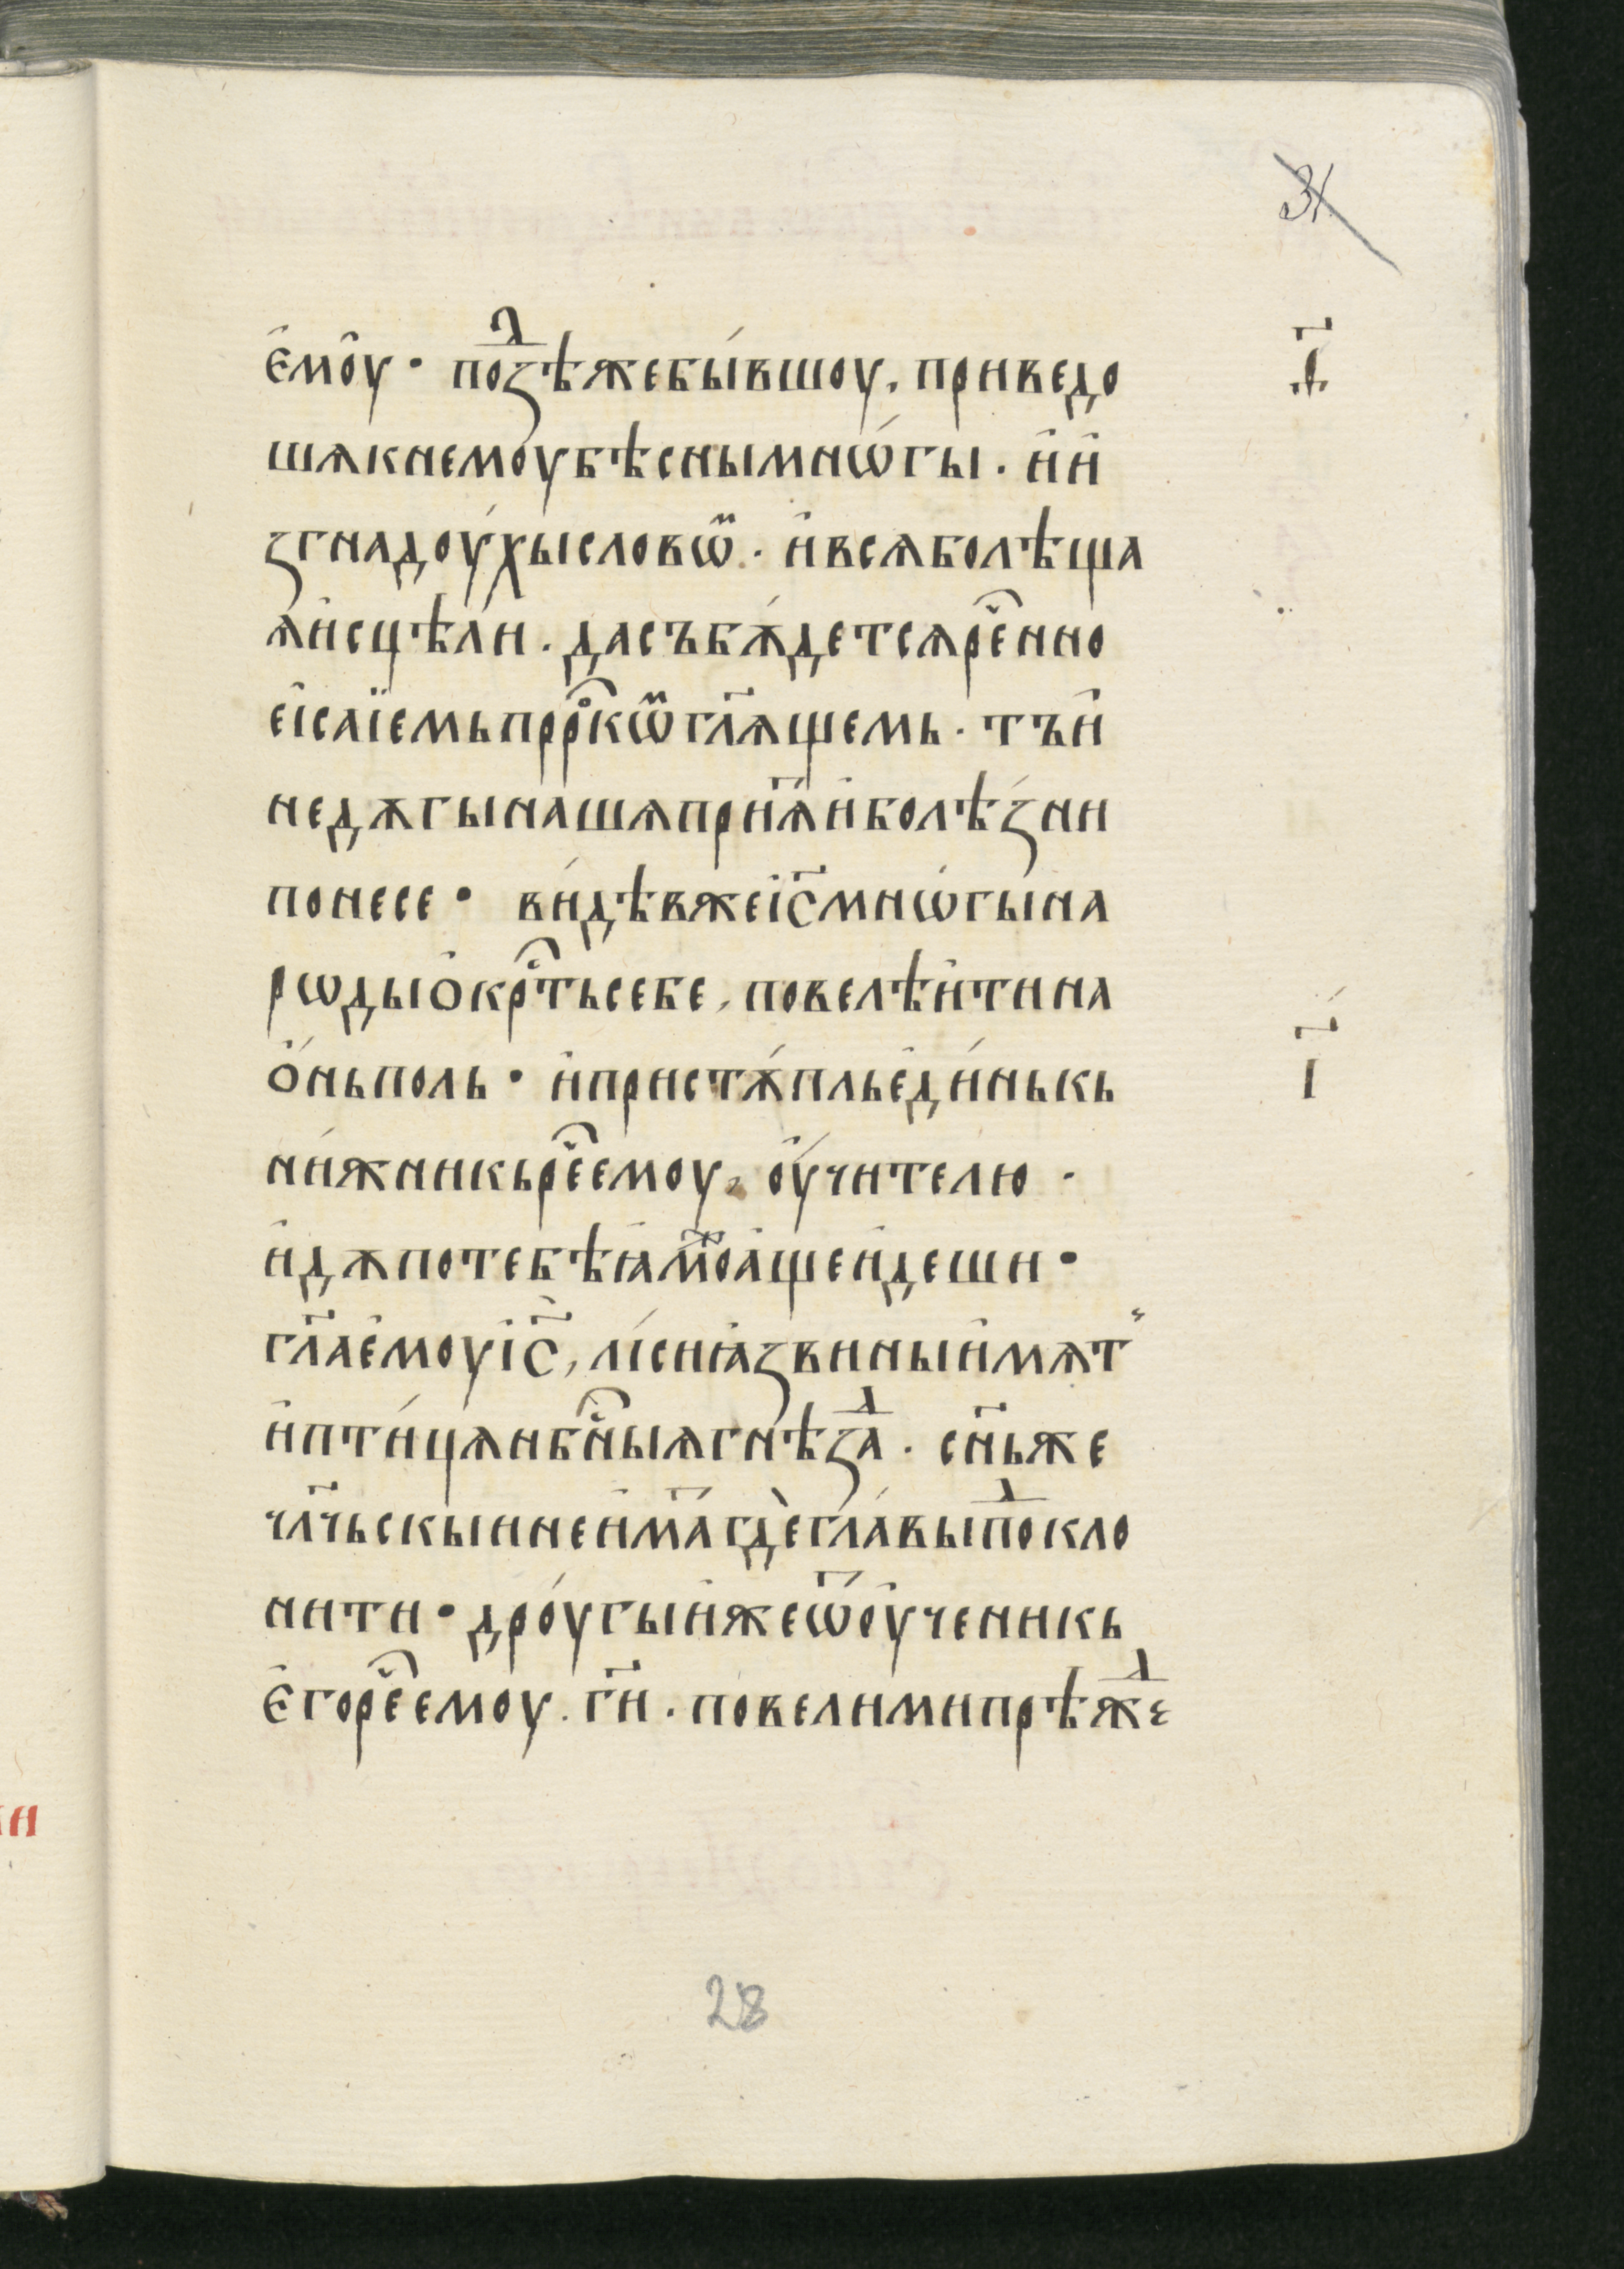 31
е҆мо̑у · поꙁⷣѣжебы́вшоу, приведо
шѧкнемоубѣснымнѡ́гы . и҆и҆
ꙁгнадоу́хысловѡⷨ · и҆всѧболѣща
ѧ҆и҆сцѣли . дасъбѫ́детсѧрⷱ҇енно
еі҆саїемьпррⷪ҇кѡⷨгл҃ѧщемь · тъи҆
недѫгынашѧпри҃ѧи҆болѣ́ꙁни
понесе · ви́дѣвжеі҆с҃мнѡ́гына
рѡдыо҆крⷭ҇тьсебе, повелѣи҆тина
ѻ҆́ньполь · и҆пристѫ́плье҆ди́нькь
ни́жникьрⷱ҇еемоу, оу҆́чителю ·
и҆дѫпотебѣꙗ҆мⷤоа҆щеи҆деши ·
гл҃ае҆моуі҆с҃, лі́сиꙗ҆ꙁвиныи҆мѫт
и҆пти́цѧнбⷭ҇ныѧгнѣꙁⷣа . сн҃ьже
чл҃чьскыинеи҆м҃агдѐгла́выпⷣокло
нити · дро́угыи҆жеѿоу҆ченикь
е҆горⷱ҇еемоу . ги҃ . повелимипрѣжⷣе
д҃
і҃
28